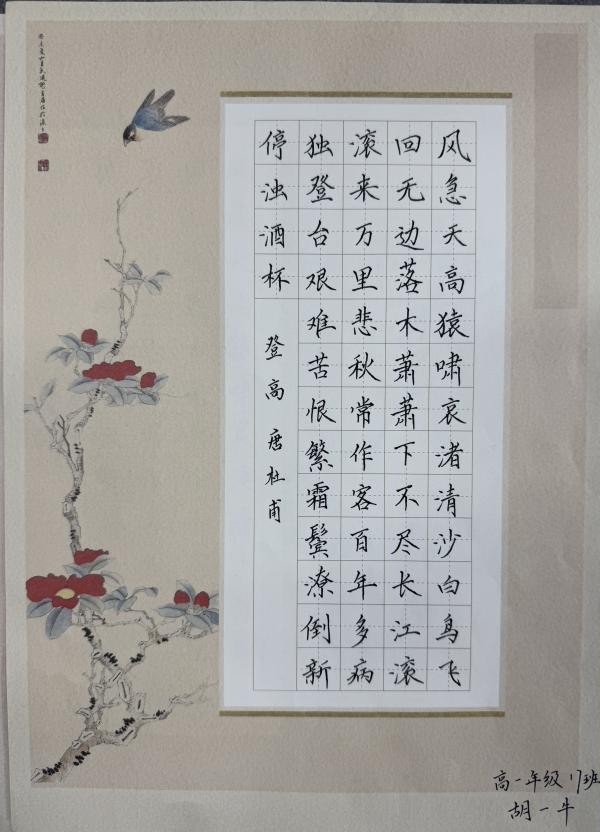 风急天高猿啸哀渚清沙白鸟飞
回无边落木萧萧下不尽长江滚
滚来万里悲秋常作客百年多病
独登台艰难苦恨繁霜鬓潦倒新
停浊酒杯
登高 唐 杜甫
高一年级17班
胡一牛